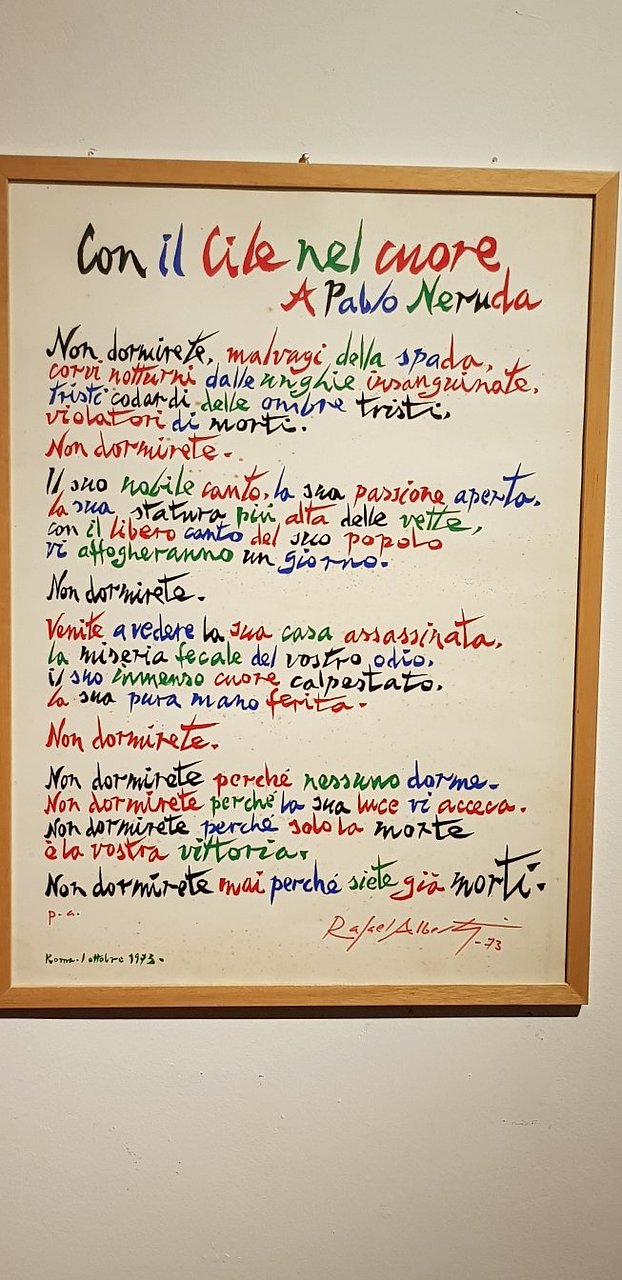 Con il Cile nel cuore
A Pablo Neruda
Non dormirete, malvagi della spada,
corvi notturni dalle unghie insanguinate,
tristi codardi delle ombre tristi,
violatori di morti.
Non dormirete.
Il suo nobile canto, la sua passione aperta,
la sua statura piú alta delle vette,
con il libero canto del suo popolo
vi affogheranno un giorno.
Non dormirete.
Venite a vedere la sua casa assassinata,
la miseria fecale del vostro odio,
il suo immenso cuore calpestato,
la sua pura mano ferita.
Non dormirete.
Non dormirete perché nessuno dorme.
Non dormirete perché la sua luce vi acceca.
Non dormirete perché solo la morte
è la vostra vittoria.
Non dormirete mai perché siete già morti.
p.a.
Rafael Alberti -73
Roma. 1 ottobre 1973.